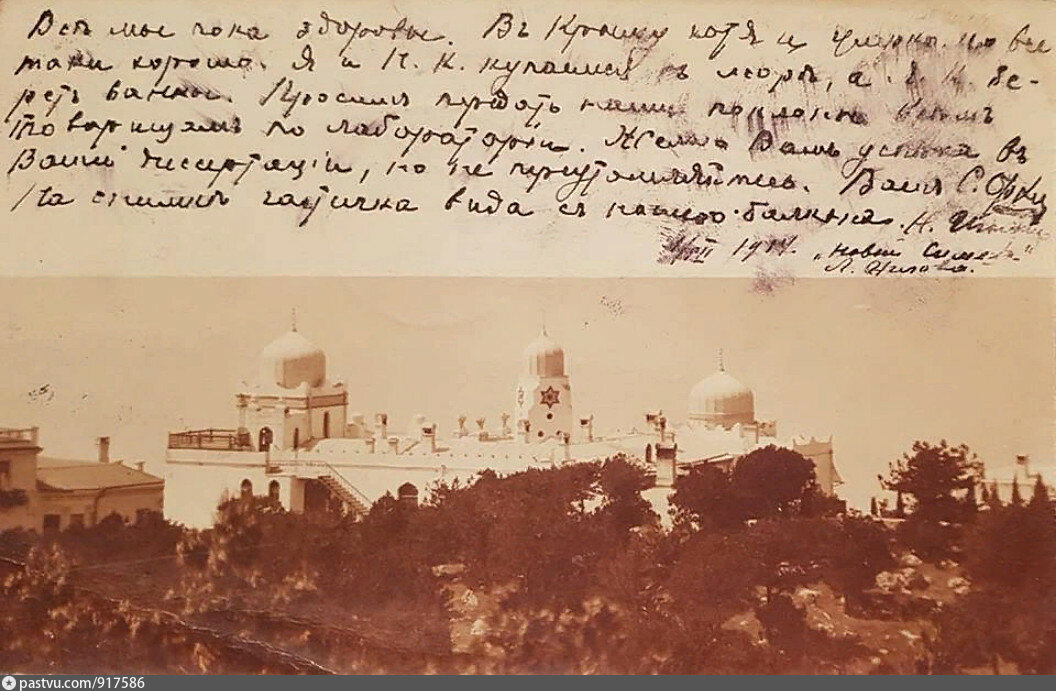 Все мы пока здоровы. Въ Крыму хотя и но все
таки хорошо. Я и Н. К. купаемся въ морѣ, а Е. К. бе-
ретъ ванны. Просимъ передать наши поклоны Всѣмъ
товарищамъ по лабораторіи. Желаю Вамъ успѣха въ
Вашей диссертаціи, но не переутомляйтесь. Вашъ С.
На снимкѣ частичка вида съ нашего балкона. Н.
1914. „Новый Симеизъ"
pastvu.com/917586